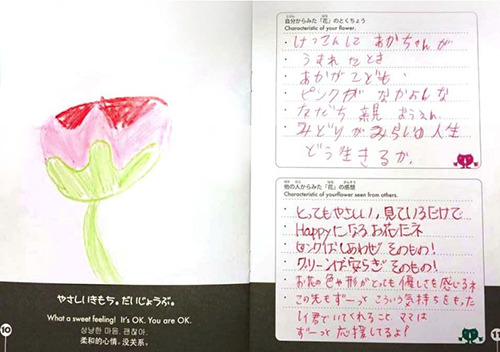 やさしいきもち。だいじょうぶ。
What a sweet feeling! It's OK. You are OK.
상냥한 마음. 괜찮아.
柔和的心情，没关系。
10
自分からみた「花」のとくちょう
Characteristic of your flower.
・けっこんして あかちゃんが
・うまれたとき
・あかがこども、
・ピンクが なかよしな
・ともだち 親 おうえん
・みどりが みらい 人生
どう生きるか。
他の人からみた「花」の感想
Characteristic of yourflower seen from others.
とってもやさしい。見ているだけで…
Happyになるお花だネ
ピンクはしあわせ そのもの！
グリーンは安らぎ そのもの！
お花の色や形がとっても優しさを感じるネ
この先もずーっと こういう気持ちをもった
君でいてくれること ママは
ずーっと応援してるよ！
11